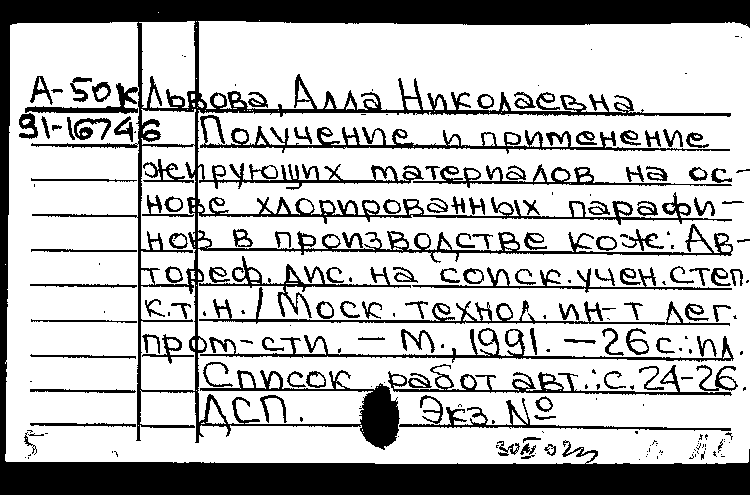 А-50к Львова, Алла Николаевна.
91-16746 Получение и применение
жирующих материалов на ос-
нове хлорированных парафи-
нов в производстве кож: Ав-
тореф. дис. на соиск. учен. степ.
к.т.н. / Моск. технол. ин-т лег.
пром-сти. — М., 1991. — 26 с.: ил.
Список работ авт.: с. 24-26.
ДСП. Экз. №
5